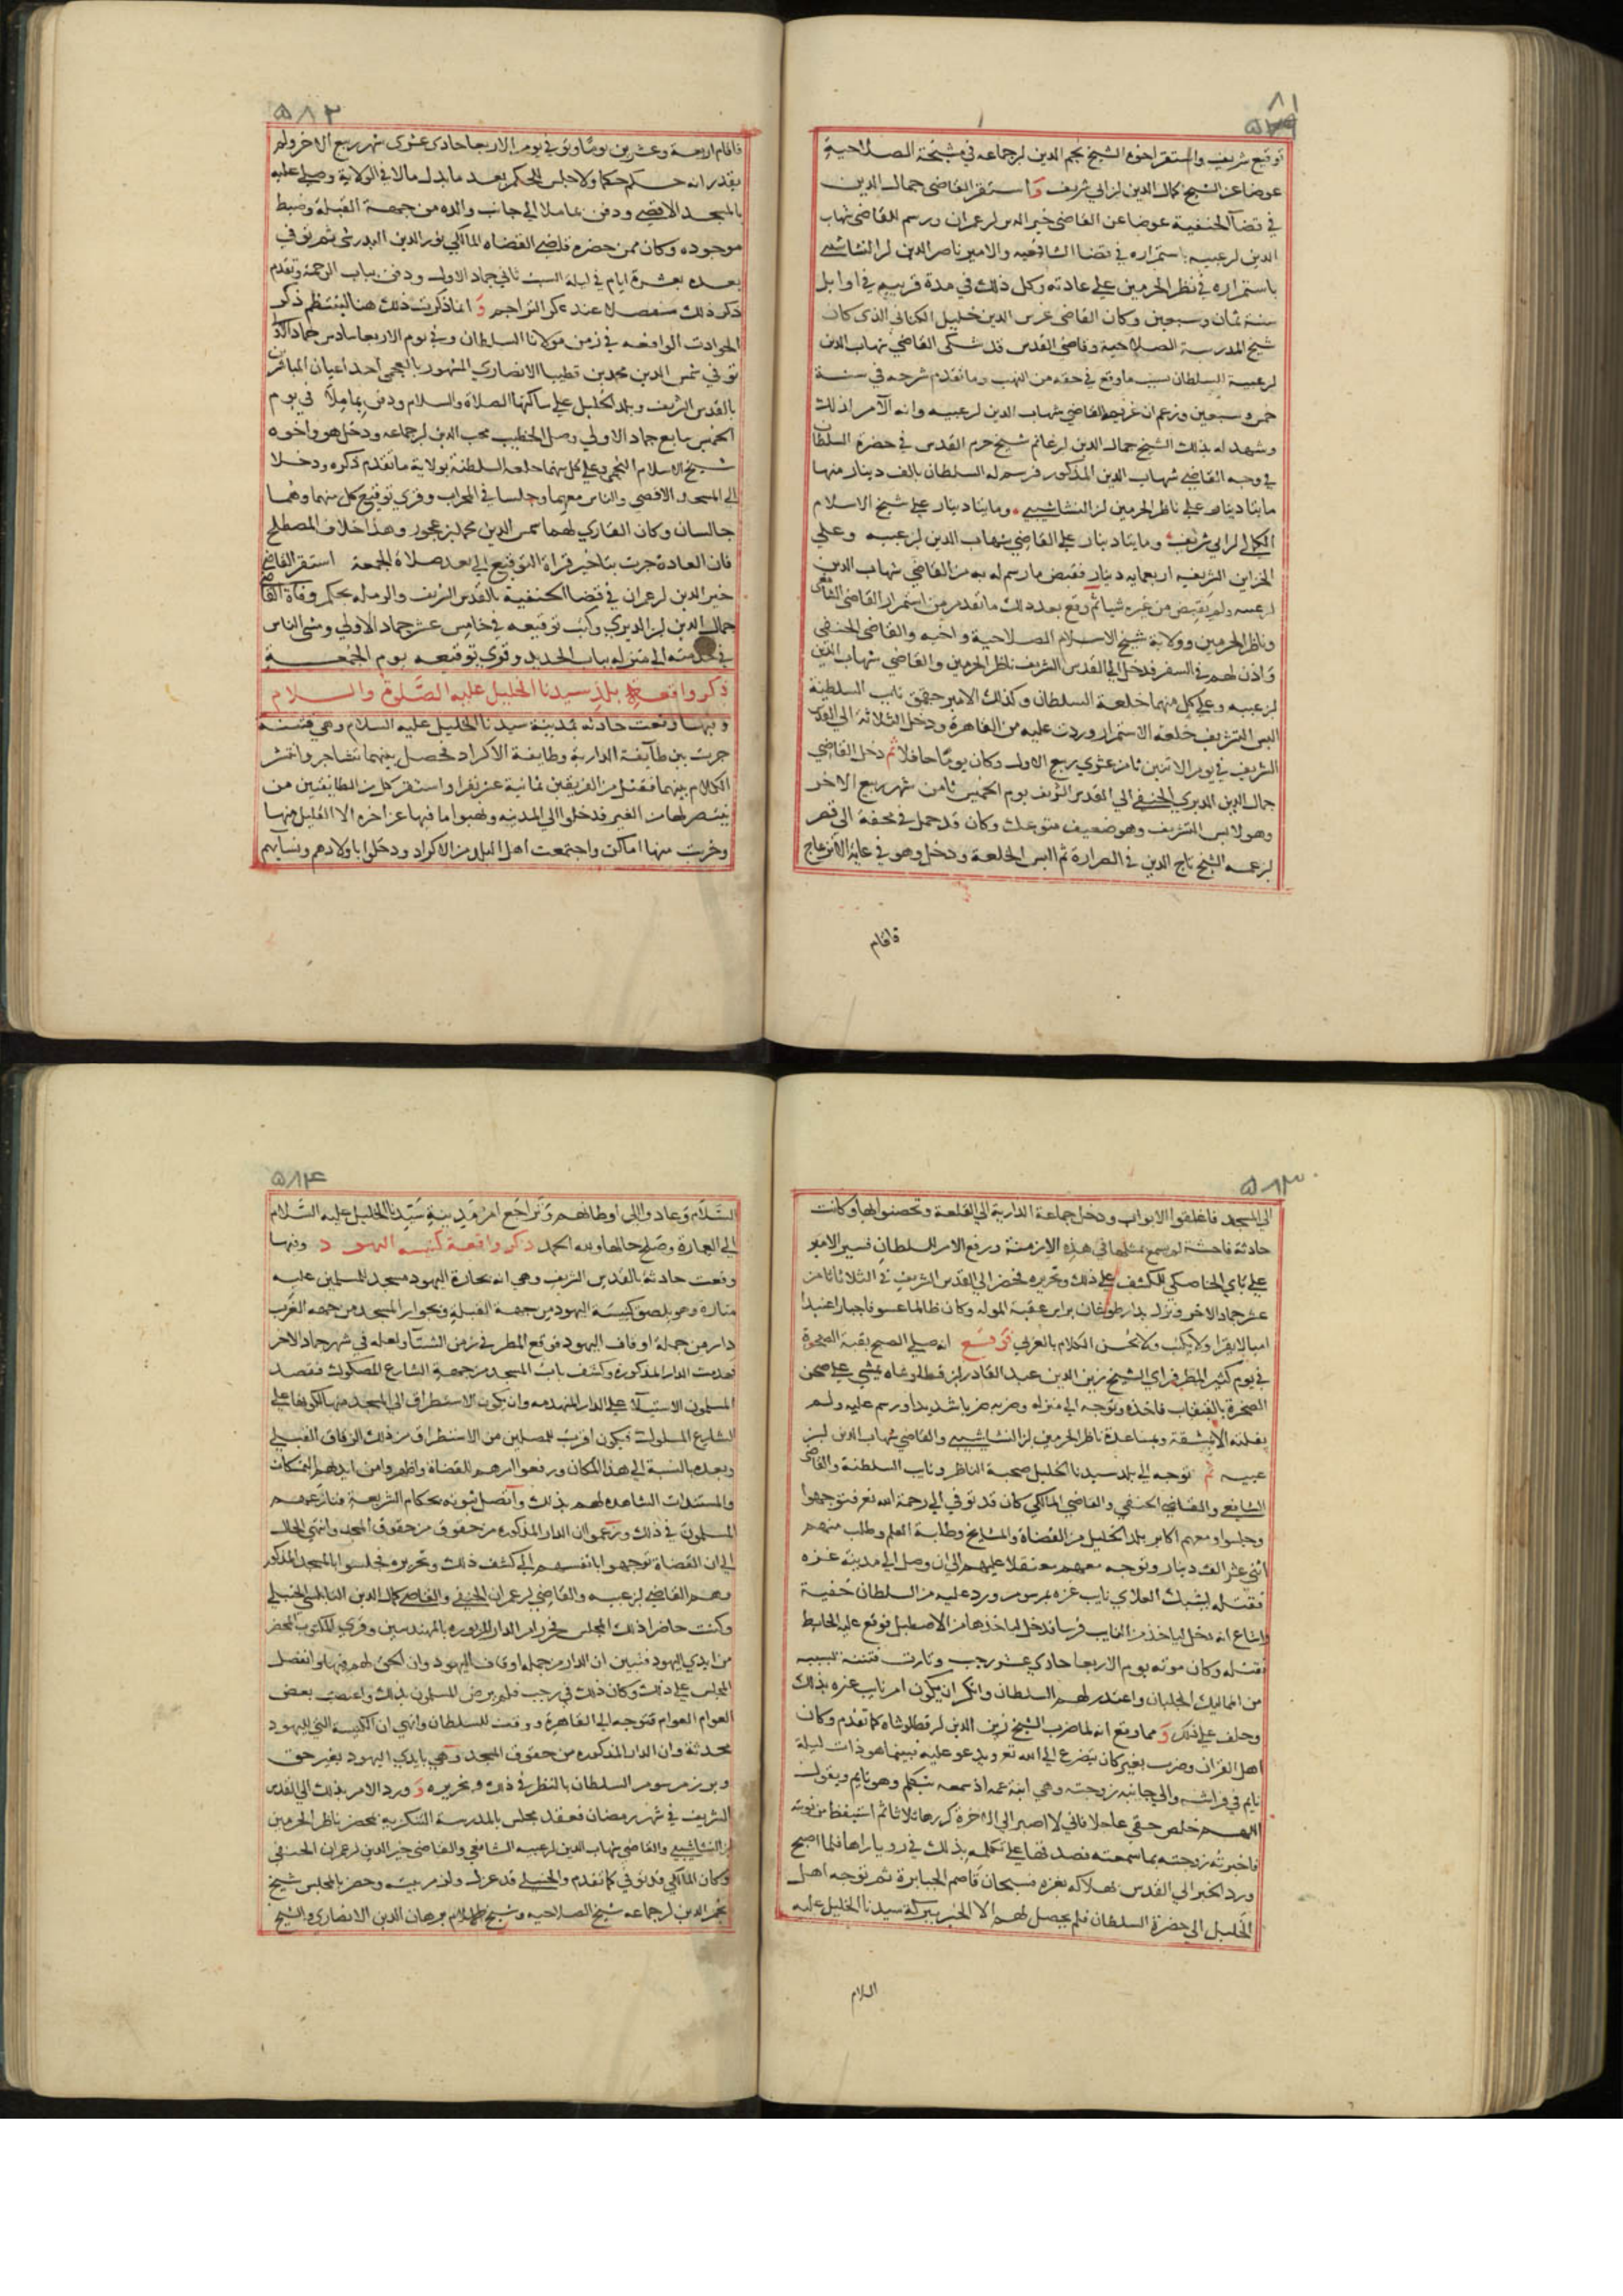 ٨١
توقيع شريف واستقر اخوه الشيخ نجم الدين ابن جماعه في مشيخة الصلاحية
عوضا عن الشيخ كمال الدين ابن ابي شريف واستقر القاضي جمال الدين
في قضا الحنفية عوضا عن القاضي خير الدين ابن عمران ورسم للقاضي شهاب
الدين ابن عبيه باستمراره في قضا الشافعيه والامير ناصر الدين ابن النشاشيبي
باستمراره في نظر الحرمين علي عادته وكل ذلك في مدة قريبه في اوايل
سنة ثمان وسبعين وكان القاضي غرس الدين خليل الكناني الذي كان
شيخ المدرسة الصلاحية وقاضي القدس قد شكي القاضي شهاب الدين
ابن عبية السلطان بسبب ما وقع في حقه من النهب وما تقدم شرحه في سنة
خمس وسبعين وزعم ان غريمه القاضي شهاب الدين ابن عبيه وانه الآمر لذلك
وشهد له بذلك الشيخ جمال الدين ابن غانم شيخ حرم القدس في حضرة السلطان
في وجه القاضي شهاب الدين المذكور فرسم له السلطان بالف دينار منها
مايتا دينار علي ناظر الحرمين ابن النشاشيبي ومايتا دينار علي شيخ الاسلام
الكمالي ابن ابي شريف ومايتا دينار علي القاضي شهاب الدين ابن عبيه وعلي
الخزاين الشريفه اربعمايه دينار فقبض ما رسم له به من القاضي شهاب الدين
ابن عبيه ولم يقبض من غيره شيا ثم وقع بعد ذلك ما تقدم من استمرار القاضي الشافعي
وناظر الحرمين وولاية شيخ الاسلام الصلاحية واخيه والقاضي الحنفي
واذن لهم في السفر فدخل الي القدس الشريف ناظر الحرمين والقاضي شهاب الدين
ابن عبيه وعلي كل منهما خلعة السلطان وكذلك الامير جقمق نايب السلطنة
البس التشريف خلعة الاستمرار وردت عليه من القاهرة ودخل الثلاثة الي القدس
الشريف في يوم الاثنين ثامن عشري ربيع الاول وكان يوما حافلا ثم دخل القاضي
جمال الدين الديري الحنفي الي القدس الشريف يوم الخميس ثامن شهر ربيع الاخر
وهو لابس التشريف وهو ضعيف متوعك وكان قد حمل في محفة الي قصر
ابن عمه الشيخ تاج الدين في الصرارة ثم البس الخلعة ودخل وهو في غاية الانزعاج
فاقام
٥٨٢
فاقام اربعة وعشرين يوما وتوفي في يوم الاربعا حادي عشري شهر ربيع الاخر ولم
يقدر انه حكم حكما ولا جلس للحكم بعد ما بذل مالا في الولاية وصلي عليه
بالمسجد الاقصي ودفن بماملا الي جانب والده من جهة القبلة وضبط
موجوده وكان ممن حضره قاضي القضاه المالكي نور الدين البدرشي ثم توفي
بعده بعشرة ايام في ليلة السبت ثاني جماد الاول ودفن بباب الرحمة وتقدم
ذكر ذلك منفصلا عند ذكر التراجم وانما ذكرت ذلك هنا لينتظم ذكر
الحوادث الواقعه في زمن مولانا السلطان وفي يوم الاربعا سادس جماد الاول
توفي شمس الدين محمد بن قطيبا الانصاري المشهور بالعجمي احد اعيان المباشرين
بالقدس الشريف وبلد الخليل علي ساكنها الصلاة والسلام ودفن بماملا في يوم
الخميس سابع جماد الاولي وصل الخطيب محب الدين ابن جماعه ودخل هو واخوه
شيخ الاسلام النجمي وعلي كل منهما خلعة السلطنة بولاية ما تقدم ذكره ودخلا
الي المسجد الاقصي والناس معهما وجلسا في المحراب وقري توقيع كل منهما وهما
جالسان وكان القاري لهما شمس الدين محمد ابن عجور وهذا خلاف المصطلح
فان العادة جرت بتاخير قراة التوقيع الي بعد صلاة الجمعة استقر القاضي
خير الدين ابن عمران في قضا الحنفية بالقدس الشريف والرمله بحكم وفاة القاضي
جمال الدين ابن الديري وكتب توقيعه في خامس عشر جماد الاولي ومشي الناس
في خدمته الي منزله بباب الحديد وقري توقيعه يوم الجمعة
ذكر واقعة بلد سيدنا الخليل عليه الصلوة والسلام
وفيها وقعت حادثه بمدينة سيدنا الخليل عليه السلام وهي فتنة
جرت بين طايفة الدارية وطايفة الاكراد فحصل بينهما تشاجر وانتشر
الكلام بينهما فقتل من الفريقين ثمانية عشر نفرا واستنفر كل من الطايفتين من
ينتصر لها من الغير فدخلوا الي المدينه ونهبوا ما فيها عن اخره الا القليل منها
وخربت منها اماكن واجتمعت اهل البلد من الاكراد ودخلوا باولادهم ونسايهم
٥٨٣
الي المسجد فاغلقوا الابواب ودخل جماعة الدارية الي القلعة وتحصنوا بها وكانت
حادثة فاحشة لم يسمع بمثلها في هذه الازمنة ورفع الامر للسلطان فسير الامير
علي باي الخاصكي للكشف علي ذلك وتحريره فحضر الي القدس الشريف في الثلاثا ثامن
عشر جماد الاخر ونزل بدار طوغان براس عقبة المولة وكان ظالما عسوفا جبارا عنيدا
اميا لا يقرا ولا يكتب ولا يحسن الكلام بالعربي قوقع انه صلي الصبح بقبة الصخرة
في يوم كثير المطر فراي الشيخ زين الدين عبد القادر ابن قطلوشاه يمشي علي صحن
الصخرة بالقبقاب فاخذه وتوجه الي منزله وضربه ضربا شديدا ورسم عليه ولم
يفلته الا بمشقة وبمساعدة ناظر الحرمين ابن النشاشيبي والقاضي شهاب الدين ابن
عبيه ثم توجه الي بلد سيدنا الخليل صحبة الناظر ونايب السلطنة والقاضي
الشافعي والقاضي الحنفي والقاضي المالكي كان قد توفي الي رحمة الله تعر فتوجهوا
وجلسوا ومعهم اكابر بلد الخليل من القضاة والمشايخ وطلبة العلم وطلب منهم
اثني عشر الف دينار وتوجه معهم معتقلا عليهم الي ان وصل الي مدينة غزه
فقتله يشبك العلاي نايب غزه بمرسوم ورد عليه من السلطان خفية
واشاع انه دخل لياخذ من النايب فرسا فدخل لياخذها من الاصطبل فوقع عليه الحايط
فقتله وكان موته يوم الاربعا حادي عشر رجب وثارت فتنة بسببه
من المماليك الجلبان واعتذر لهم السلطان وانكر ان يكون امر نايب غزه بذلك
وحلف علي ذلك ومما وقع انه لما ضرب الشيخ زين الدين ابن قطلوشاه كما تقدم وكان
اهل القران وضرب بغير كان يتضرع الي الله تعر ويدعو عليه فبينما هو ذات ليلة
نايم في فراشه والي جانبه زوجته وهي ابنة عمه اذ سمعه يتكلم وهو نايم ويقول
اللهم خلص حقي عاجلا فاني لا اصبر الي الاخرة كررها ثلاثا ثم استيقظ من نومه
فاخبرته زوجته بما سمعته فصدقها علي تكلمه بذلك في رويا راها فلما اصبح
ورد الخبر الي القدس بهلاكه بغزه فسبحان قاصم الجبابرة ثم توجه اهل
الخليل الي حضرة السلطان فلم يحصل لهم الا الخير ببركة سيدنا الخليل عليه
السلام
٥٨٤
السلام وعادوا الي اوطانهم وتراجع امر مدينة سيدنا الخليل عليه السلام
الي العمارة وصلح حالها ولله الحمد ذكر واقعة كنيسة اليهود وفيها
وقعت حادثة بالقدس الشريف وهي انه بحارة اليهود مسجد للمسلمين عليه
منارة وهو بلصق كنيسة اليهود من جهة القبلة وبجوار المسجد من جهه الغرب
دار من جملة اوقاف اليهود فوقع المطر في زمن الشتا ولعله في شهر جماد الاخر
فهدمت الدار المذكوره وكشف باب المسجد من جهة الشارع المسكوك فقصد
المسلمون الاستيلا علي الدار المنهدمه وان يكون الاستطراق الي المسجد منها لكونها علي
الشارع المسلوك فيكون اقرب للمصلين من الاستطراق من ذلك الزقاق القبلي
وبعده بالنسبة الي هذا المكان ورفعوا امرهم للقضاة واظهروا من ايديهم التمسكات
والمستندات الشاهده لهم بذلك واتصل ثبوته بحكام الشريعة فنازعهم
المسلمون في ذلك وزعموا ان الدار المذكوره من حقوق من حقوق المسجد وانتهي الحال
الي ان القضاة توجهوا بانفسهم الي كشف ذلك وتحريره فجلسوا بالمسجد المذكور
وهم القاضي ابن عبيه والقاضي ابن عمران الحنفي والقاضي كمال الدين النابلسي الحنبلي
وكنت حاضرا ذلك المجلس وحرر امر الدار المزبوره بالمهندسين وقري المكتوب المحضر
من ايدي اليهود فتبين ان الدار من جملة اوقاف اليهود وان الحق لهم فيها وانفصل
المجلس علي ذلك وكان ذلك في رجب فلم يرض المسلمون بذلك واعتصب بعض
العوام العوام فتوجه الي القاهره ووقف للسلطان وانهي ان الكنيسة التي لليهود
محدثة وان الدار المذكوره من حقوق المسجد وهي بايدي اليهود بغير حق
وبرز مرسوم السلطان بالنظر في ذلك وتحريره وورد الامر بذلك الي القدس
الشريف في شهر رمضان فعقد مجلس بالمدرسة التنكزيه بحضر ناظر الحرمين
ابن النشاشيبي والقاضي شهاب الدين ابن عبيه الشافعي والقاضي خير الدين ابن عمران الحنفي
وكان المالكي قد توفي كما تقدم والحنبلي قد عزل ولزم بيته وحضر بالمجلس شيخ
نجم الدين ابن جماعه شيخ الصلاحيه وشيخ الاسلام برهان الدين الانصاري والشيخ